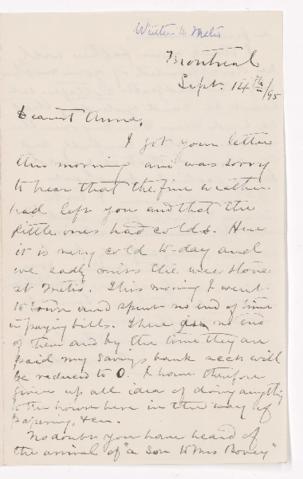 Written to Metis
Montreal
Sept. 14th/95
Dearest Anna,
I got your letter
this morning and was sorry
to hear that the fine weather
had left you and that the
little ones had colds. Here
it is very cold to-day and
we sadly miss the wee stove
at Metis. This morning I went
to town and spent no end of time
in paying bills. There is no end
of them and by the time they are
paid my savings bank acct will
be reduced to 0. I have therefore
given up all idea of doing anything
to the house here in the way of
papering, &c.
No doubt you have heard of
the arrival of "a Son to Mrs Bovey"